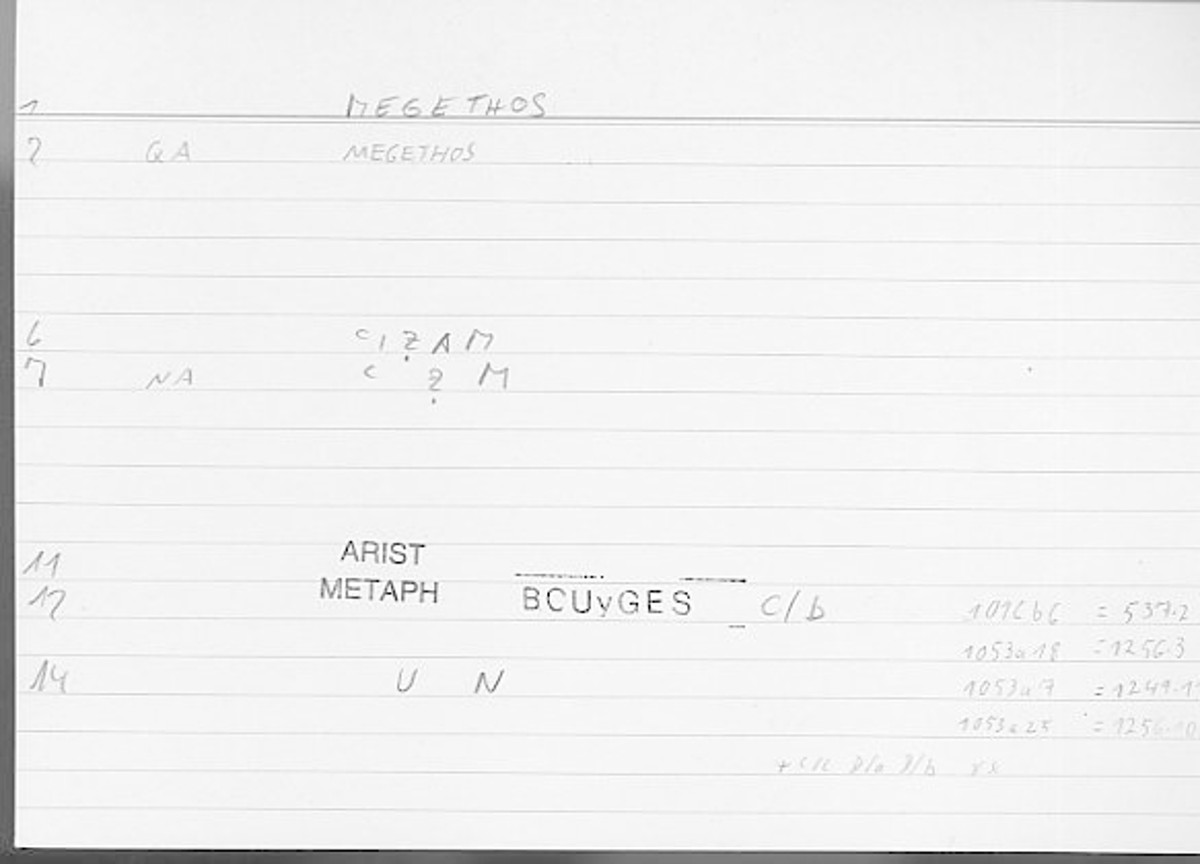 1 MEGETHOS
2 QA MEGETHOS
6 C I Ẓ A M
7 NA C Ẓ M
11 ARIST
12 METAPH BCUyGES C/b 1016b6 = 537.2
1053a18 = 1256.3
14 U N 1053a7 = 1249.1
1053a25 = 1256.10